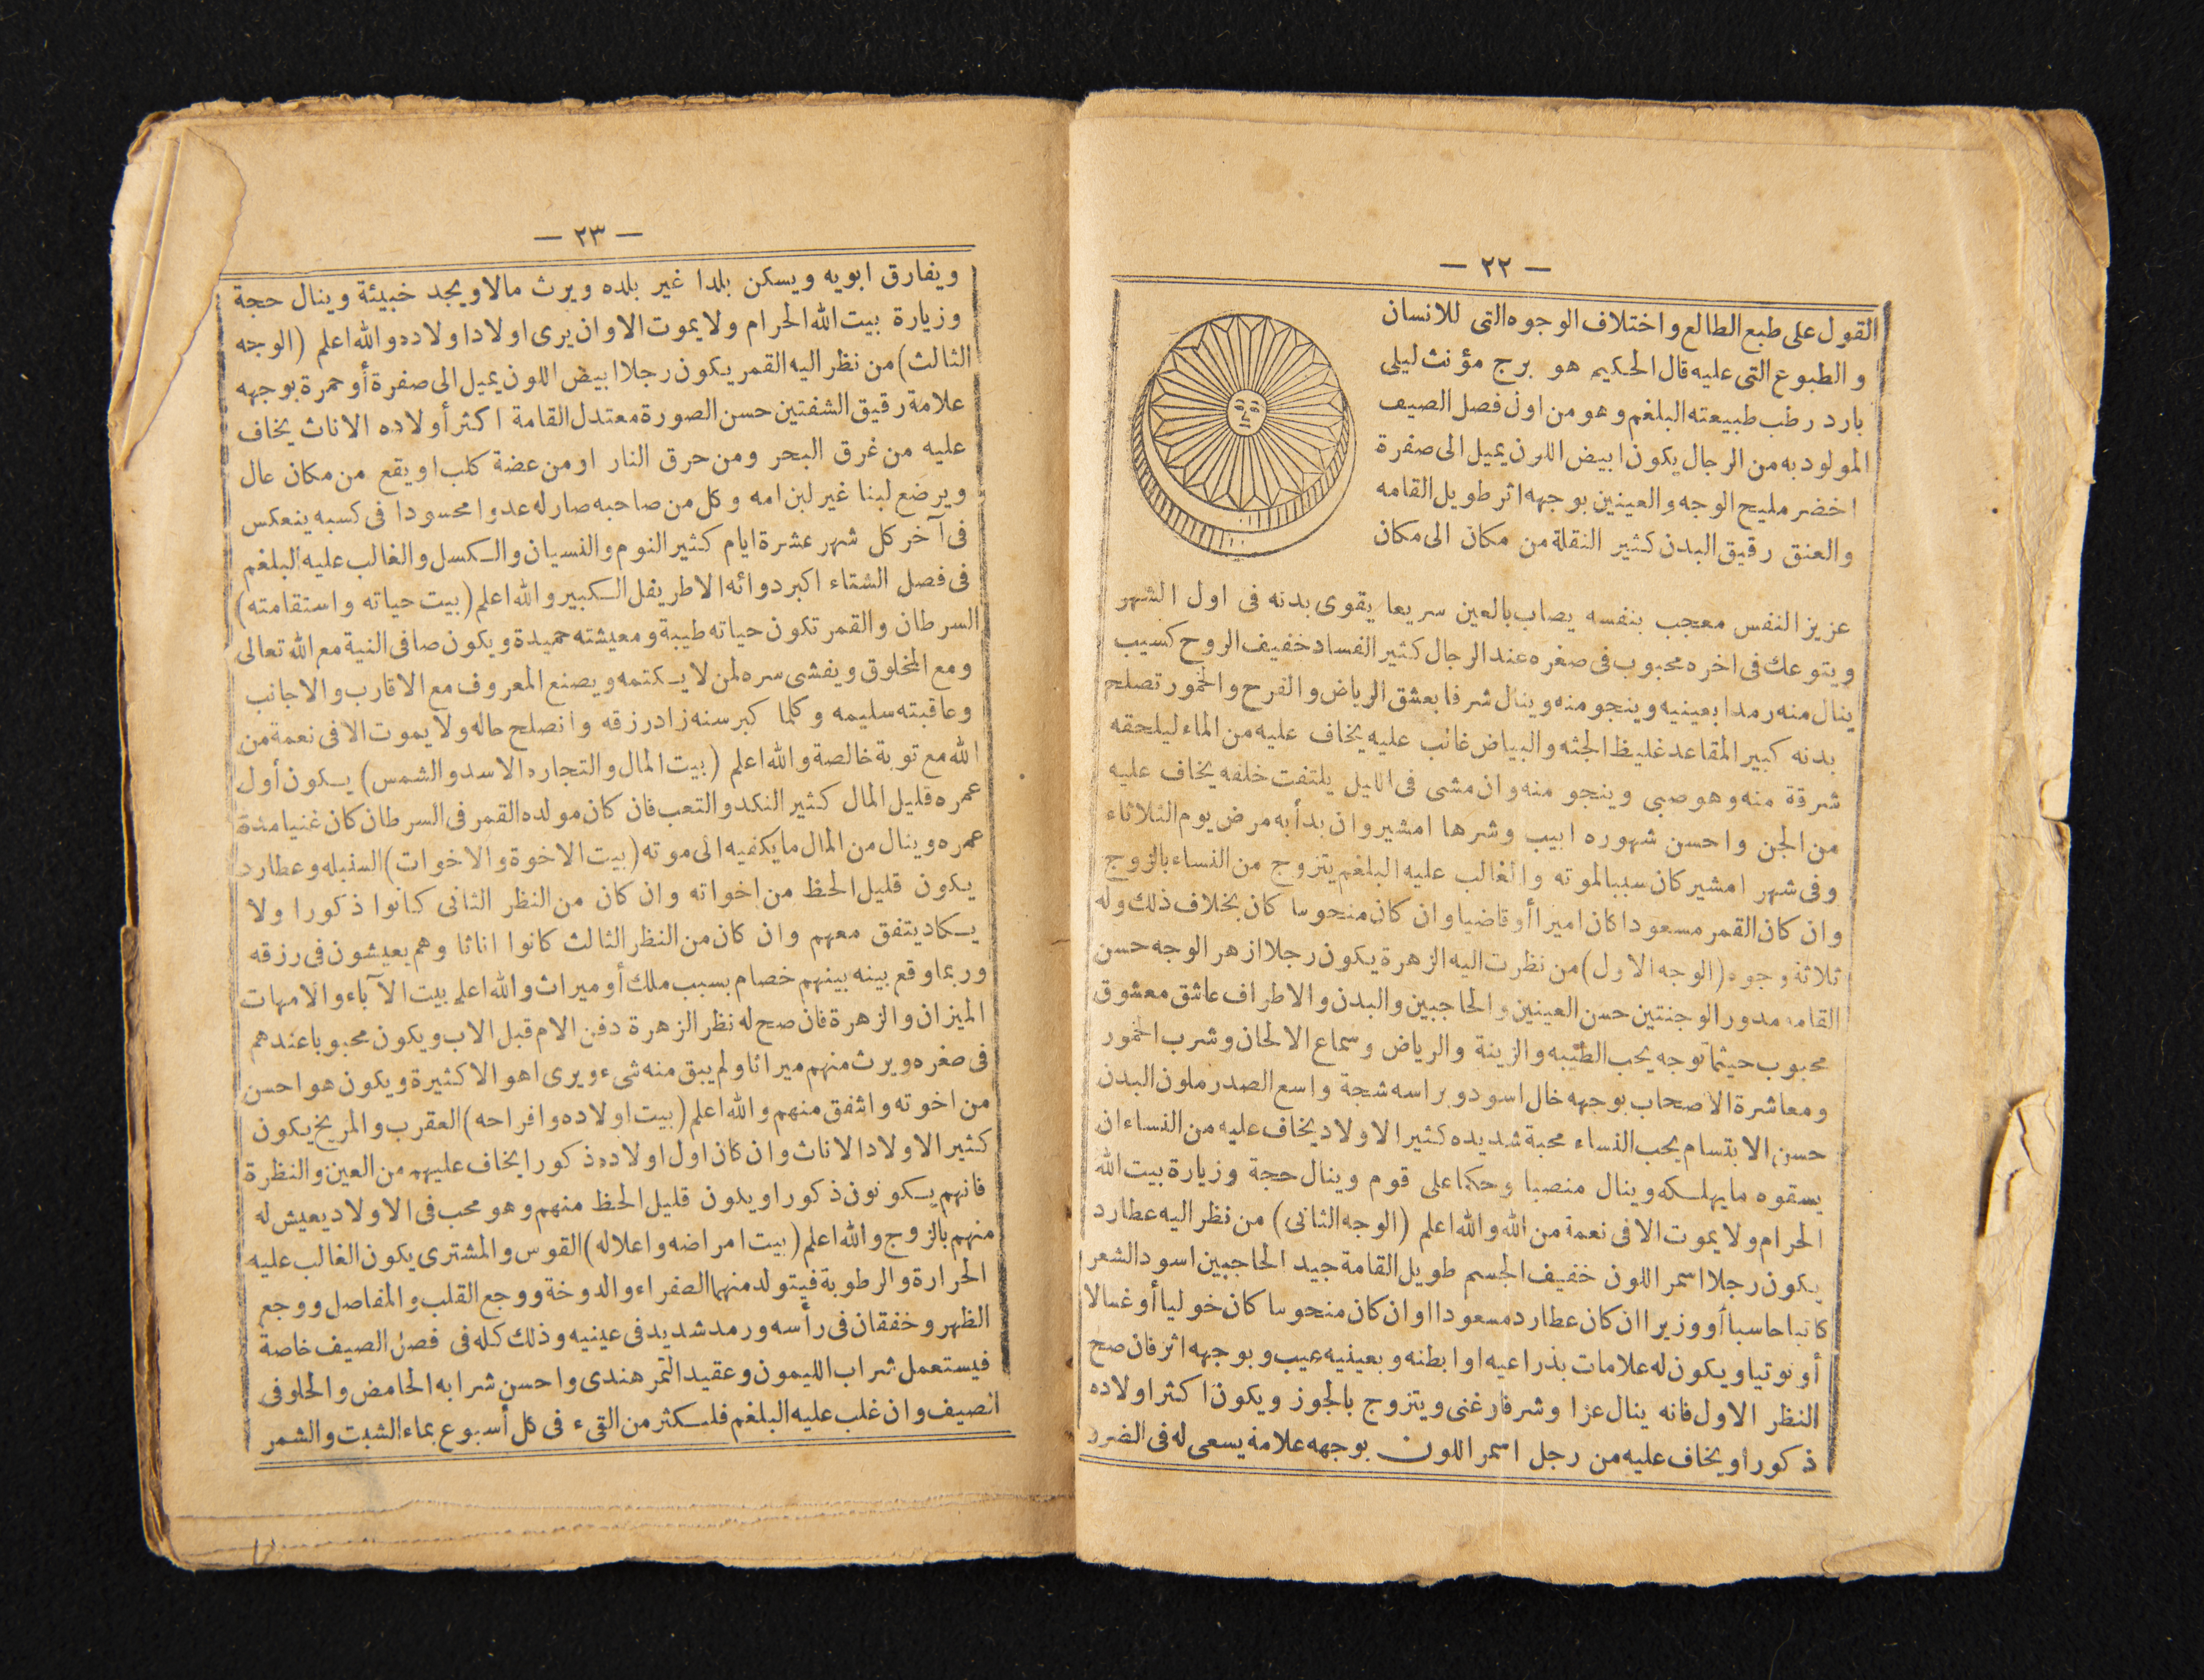 — ٢٢ —
القول على طبع الطالع واختلاف الوجوه التى للانسان
والطبوع التى عليه قال الحكيم هو برج مؤنث ليلى
بارد رطب طبيعته البلغم وهو من اول فصل الصيف
المولود به من الرجال يكون ابيض اللون يميل الى صفرة
اخضر مليح الوجه والعينين بوجهه اثر طويل القامه
والعنق رقيق البدن كثير النقلة من مكان الى مكان
عزيز النفس معجب بنفسه يصاب بالعين سريعا يقوى بدنه فى اول الشهر
ويتوعك فى اخره محبوب فى صغره عند الرجال كثير الفساد خفيف الروح كسيب
ينال منه رمدا بعينيه وينجو منه وينال شرفا بعشق الرياض والفرح والخمور تصلح
بدنه كبير المقاعد غليظ الجثه والبياض غالب عليه يخاف عليه من الماء ليلحقه
شرقة منه وهو صبى وينجو منه وان مشى فى الليل يلتفت خلفه يخاف عليه
من الجن واحسن شهوره ابيب وشرها امشير وان بدأ به مرض يوم الثلاثاء
وفى شهر امشير كان سببا لموته والغالب عليه البلغم يتزوج من النساء بالزوج
وان كان القمر مسعودا كان اميرا أو قاضيا وان كان منحوسا كان بخلاف ذلك وله
ثلاثة وجوه (الوجه الاول) من نظرت اليه الزهرة يكون رجلا ازهر الوجه حسن
القامه مدور الوجنتين حسن العينين والحاجبين والبدن والاطراف عاشق معشوق
محبوب حيثما توجه يحب الطيبه والزينة والرياض وسماع الالحان وشرب الخمور
ومعاشرة الاصحاب بوجهه خال اسود وبراسه شجة واسع الصدر ملون البدن
حسن الابتسام يحب النساء محبة شديده كثير الاولاد يخاف عليه من النساء ان
يسقوه ما يهلكه وينال منصبا وحكما على قوم وينال حجة وزيارة بيت الله
الحرام ولا يموت الا فى نعمة من الله والله اعلم (الوجه الثانى) من نظر اليه عطارد
يكون رجلا اسمر اللون خفيف الجسم طويل القامة جيد الحاجبين اسود الشعر
كاتبا حاسبا أو وزيرا ان كان عطارد مسعودا او ان كان منحوسا كان خوليا أو غسالا
أو نوتيا ويكون له علامات بذراعيه او ابطنه وبعينيه عيب وبوجهه اثر فان صح
النظر الاول فانه ينال عزا وشرفا رغنى ويتزوج بالجوز ويكون اكثر اولاده
ذكورا ويخاف عليه من رجل اسمر اللون بوجهه علامة يسعى له فى الضرر
— ٢٣ —
ويفارق ابويه ويسكن بلدا غير بلده ويرث مالا ويجد خبيئة وينال حجة
وزيارة بيت الله الحرام ولا يموت الا وان يرى اولادا اولاده والله اعلم (الوجه
الثالث) من نظر اليه القمر يكون رجلا ابيض اللون يميل الى صفرة أو حمرة بوجهه
علامة رقيق الشفتين حسن الصورة معتدل القامة اكثر أولاده الاناث يخاف
عليه من غرق البحر ومن حرق النار او من عضة كلب او يقع من مكان عال
ويرضع لبنا غير لبن امه وكل من صاحبه صار له عدوا محسودا فى كسبه ينعكس
فى آخر كل شهر عشرة ايام كثير النوم والنسيان والكسل والغالب عليه البلغم
فى فصل الشتاء اكبر دوائه الاطريفل الكبير والله اعلم (بيت حياته واستقامته)
السرطان والقمر تكون حياته طيبة ومعيشته حميدة ويكون صافى النية مع الله تعالى
ومع المخلوق ويفشى سره لمن لا يكتمه ويصنع المعروف مع الاقارب والاجانب
وعاقبته سليمه وكلما كبر سنه زاد رزقه وانصلح حاله ولا يموت الا فى نعمة من
الله مع توبة خالصة والله اعلم (بيت المال والتجاره الاسد والشمس) يكون أول
عمره قليل المال كثير النكد والتعب فان كان مولده القمر فى السرطان كان غنيا مدة
عمره وينال من المال ما يكفيه الى موته (بيت الاخوة والاخوات) السنبله وعطارد
يكون قليل الحظ من اخواته وان كان من النظر الثانى كانوا ذكورا ولا
يكاد يتفق معهم وان كان من النظر الثالث كانوا اناثا وهم يعيشون فى رزقه
وربما وقع بينه بينهم خصام بسبب ملك أو ميراث والله اعلم بيت الآباء والامهات
الميزان والزهرة فان صح له نظر الزهرة دفن الام قبل الاب ويكون محبوبا عندهم
فى صغره ويرث منهم ميراثا ولم يبق منه شىء ويرى اهوالا كثيرة ويكون هو احسن
من اخوته واشفق منهم والله اعلم (بيت اولاده وافراحه) العقرب والمريخ يكون
كثير الاولاد الاناث وان كان اول اولاده ذكورا يخاف عليهم من العين والنظرة
فانهم يكونون ذكورا ويكون قليل الحظ منهم وهو محب فى الاولاد يعيش له
منهم بالزوج والله اعلم (بيت امراضه واعلاله) القوس والمشترى يكون الغالب عليه
الحرارة والرطوبة فيتولد منهما الصفراء والدوخة ووجع القلب والمفاصل ووجع
الظهر وخفقان فى رأسه ورمد شديد فى عينيه وذلك كله فى فصل الصيف خاصة
فيستعمل شراب الليمون وعقيد التمر هندى واحسن شرابه الحامض والحلو فى
الصيف وان غلب عليه البلغم فليكثر من القىء فى كل أسبوع بماء الشبت والشمر